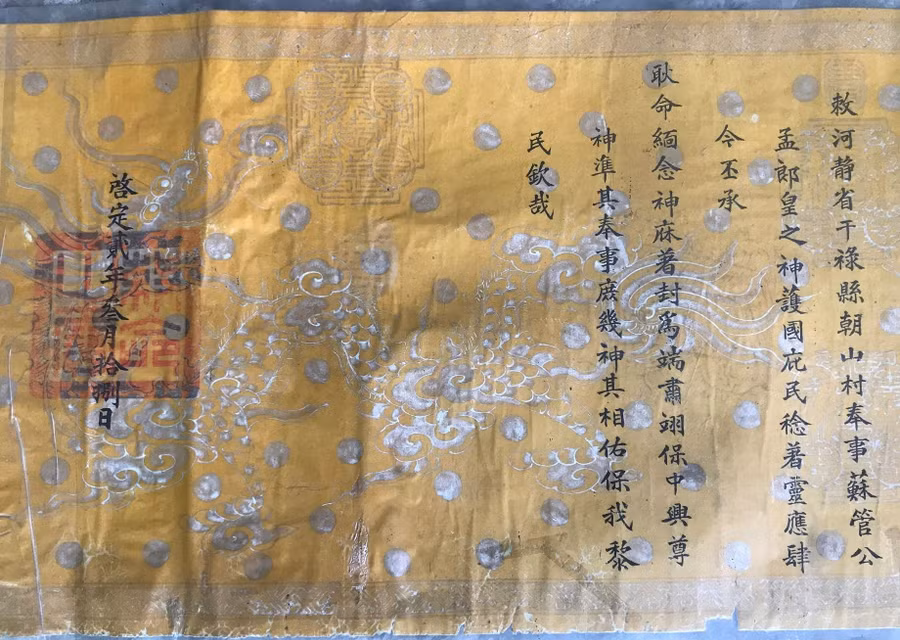 敕河静省干祿縣朝山村奉事蘇管公
孟郎皇之神護國庇民稔著靈應肆
今丕承
耿命緬念神庥著封爲端肅翊保中興尊
神準其奉事庶幾神其相佑保我黎
民欽哉
啓定貳年叁月拾捌日